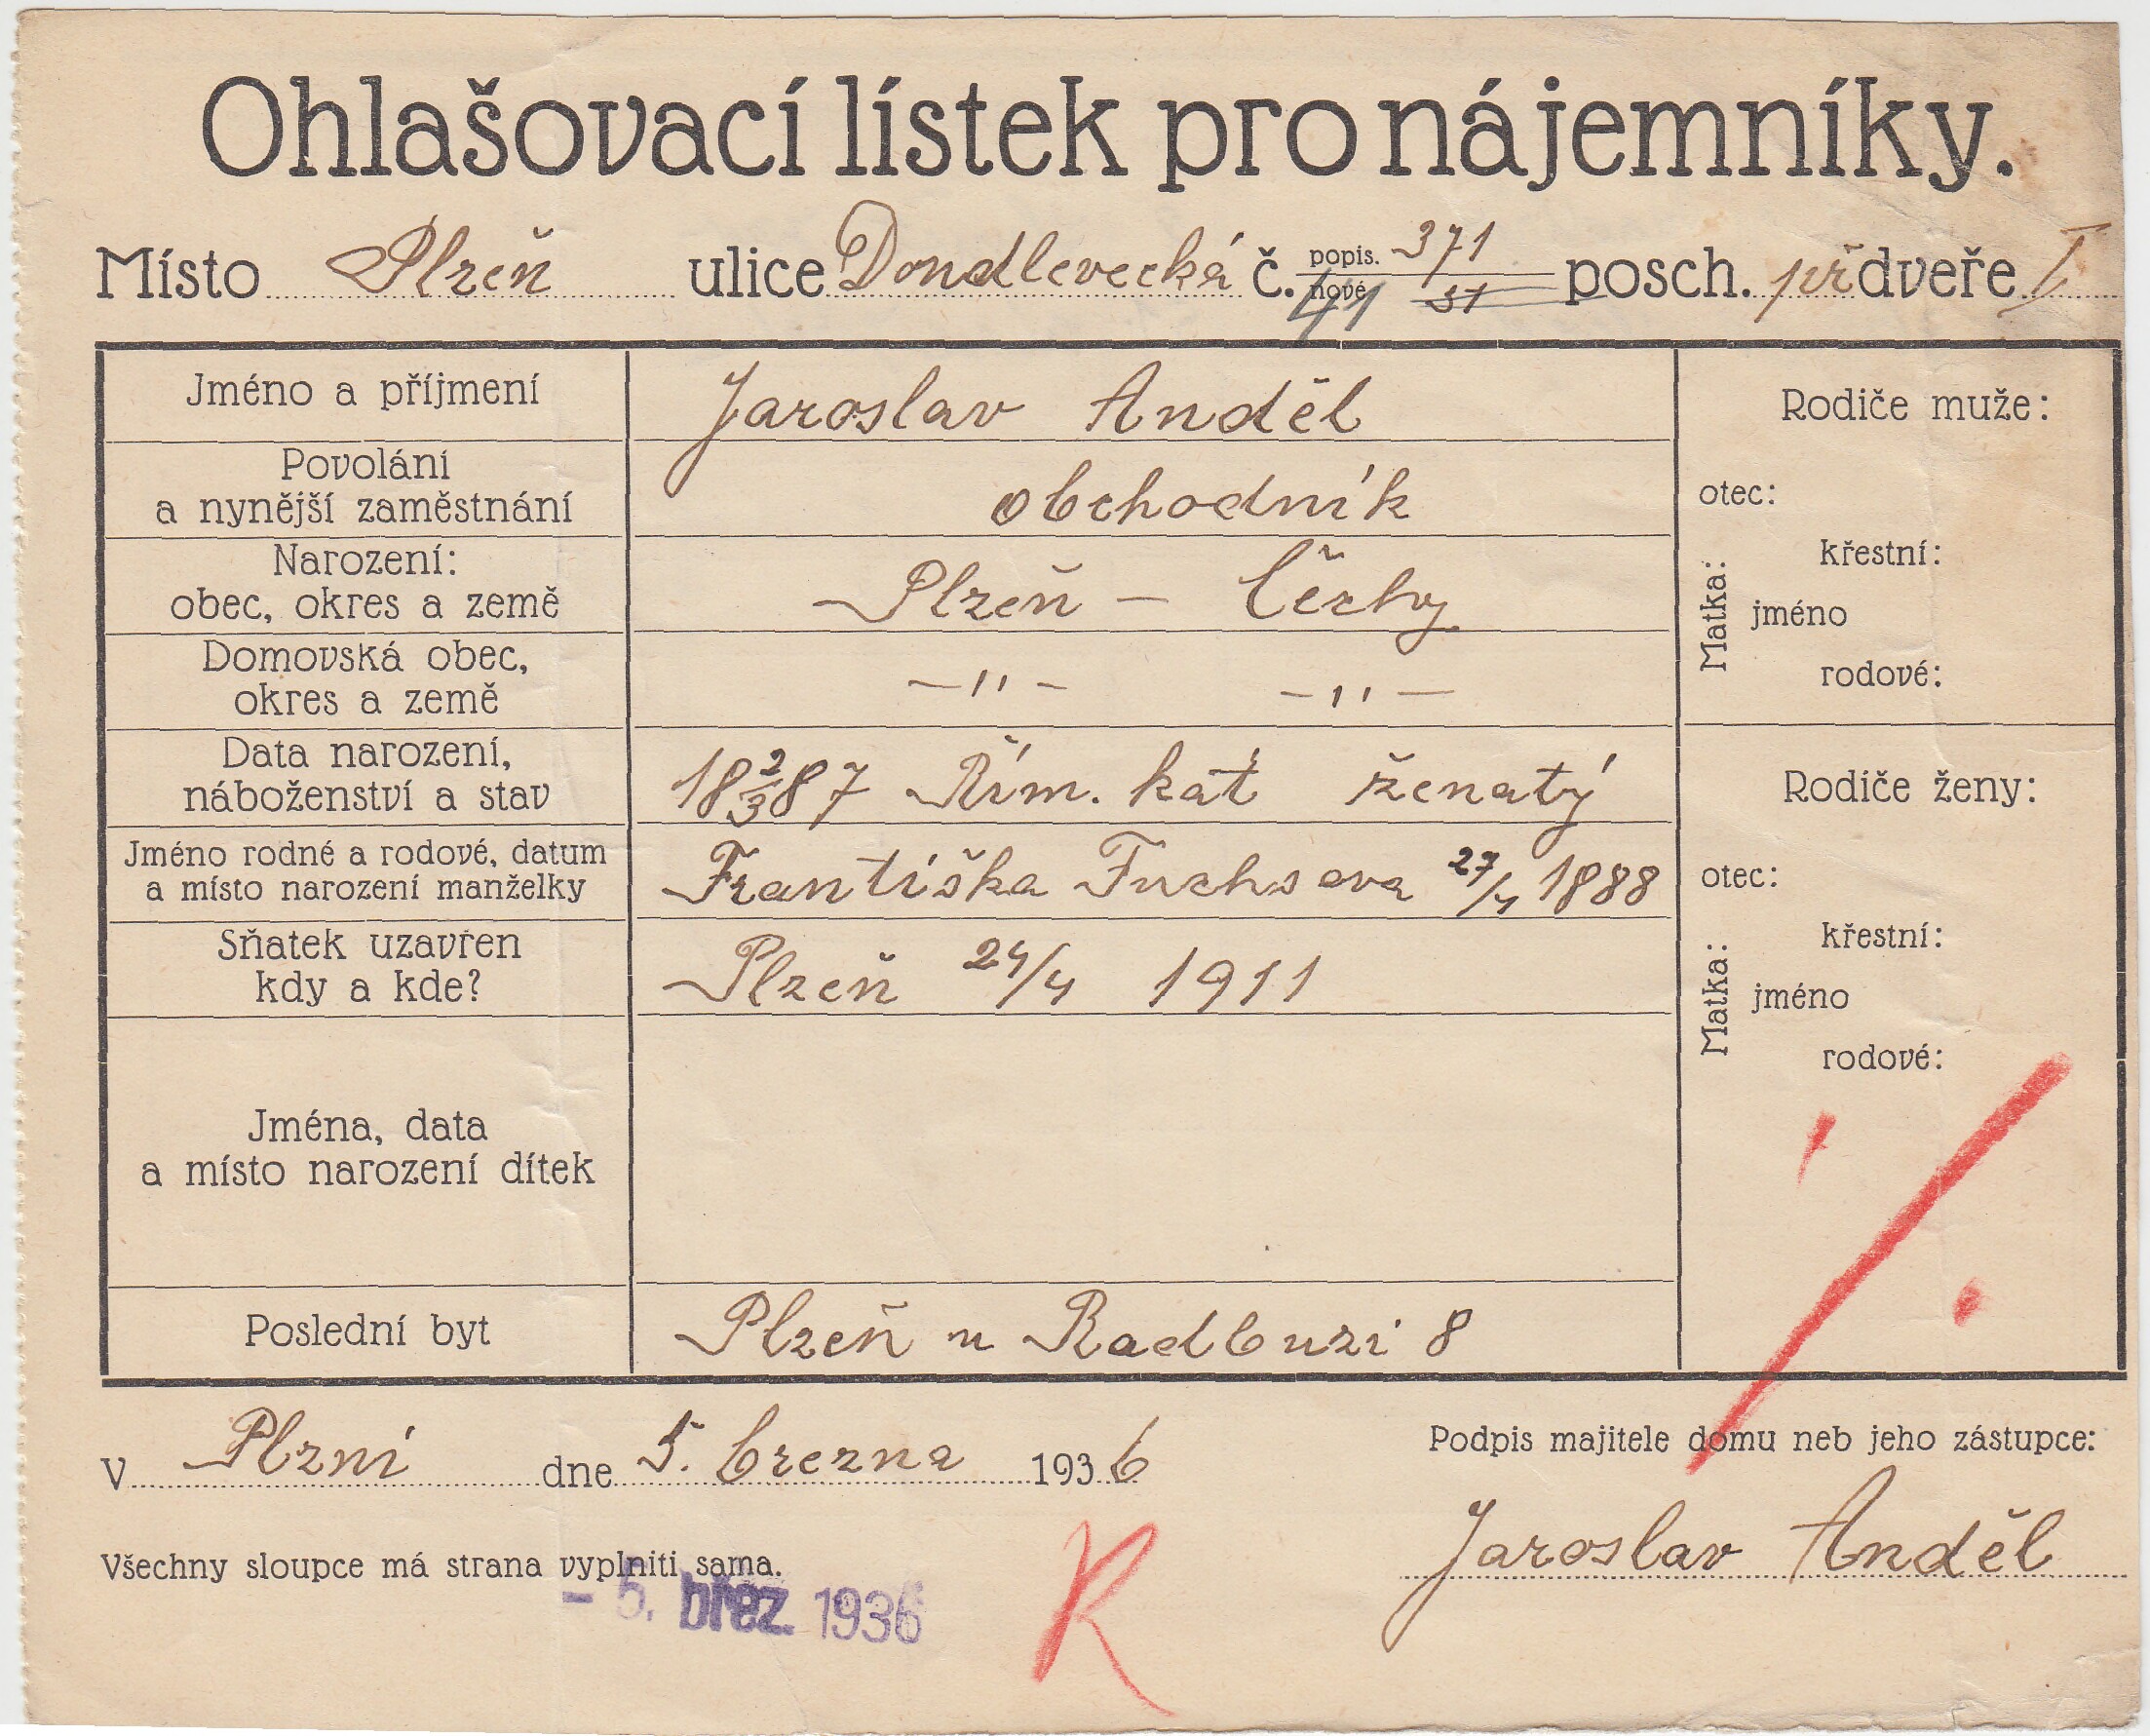 Ohlašovací lístek pro nájemníky.
Místo Plzeň ulice Dondlevecká č. popis. 371 nové 31 41 posch. př dveře I
Jméno a příjmení Jaroslav Anděl
Povolání
a nynější zaměstnání obchodník
Narození:
obec, okres a země Plzeň – Čechy
Domovská obec,
okres a země –"– –"–
Data narození,
náboženství a stav 18 2/3 87 Řím. kat ženatý
Jméno rodné a rodové, datum
a místo narození manželky Františka Fuchsova 27/4 1888
Sňatek uzavřen
kdy a kde? Plzeň 24/4 1911
Jména, data
a místo narození dítek
Poslední byt Plzeň u Radbuzi 8
Rodiče muže:
otec:
Matka:
křestní:
jméno
rodové:
Rodiče ženy:
otec:
Matka:
křestní:
jméno
rodové:
V Plzni dne 5. března 1936
Podpis majitele domu neb jeho zástupce:
Jaroslav Anděl
Všechny sloupce má strana vyplniti sama.
- 5. břez. 1936
K